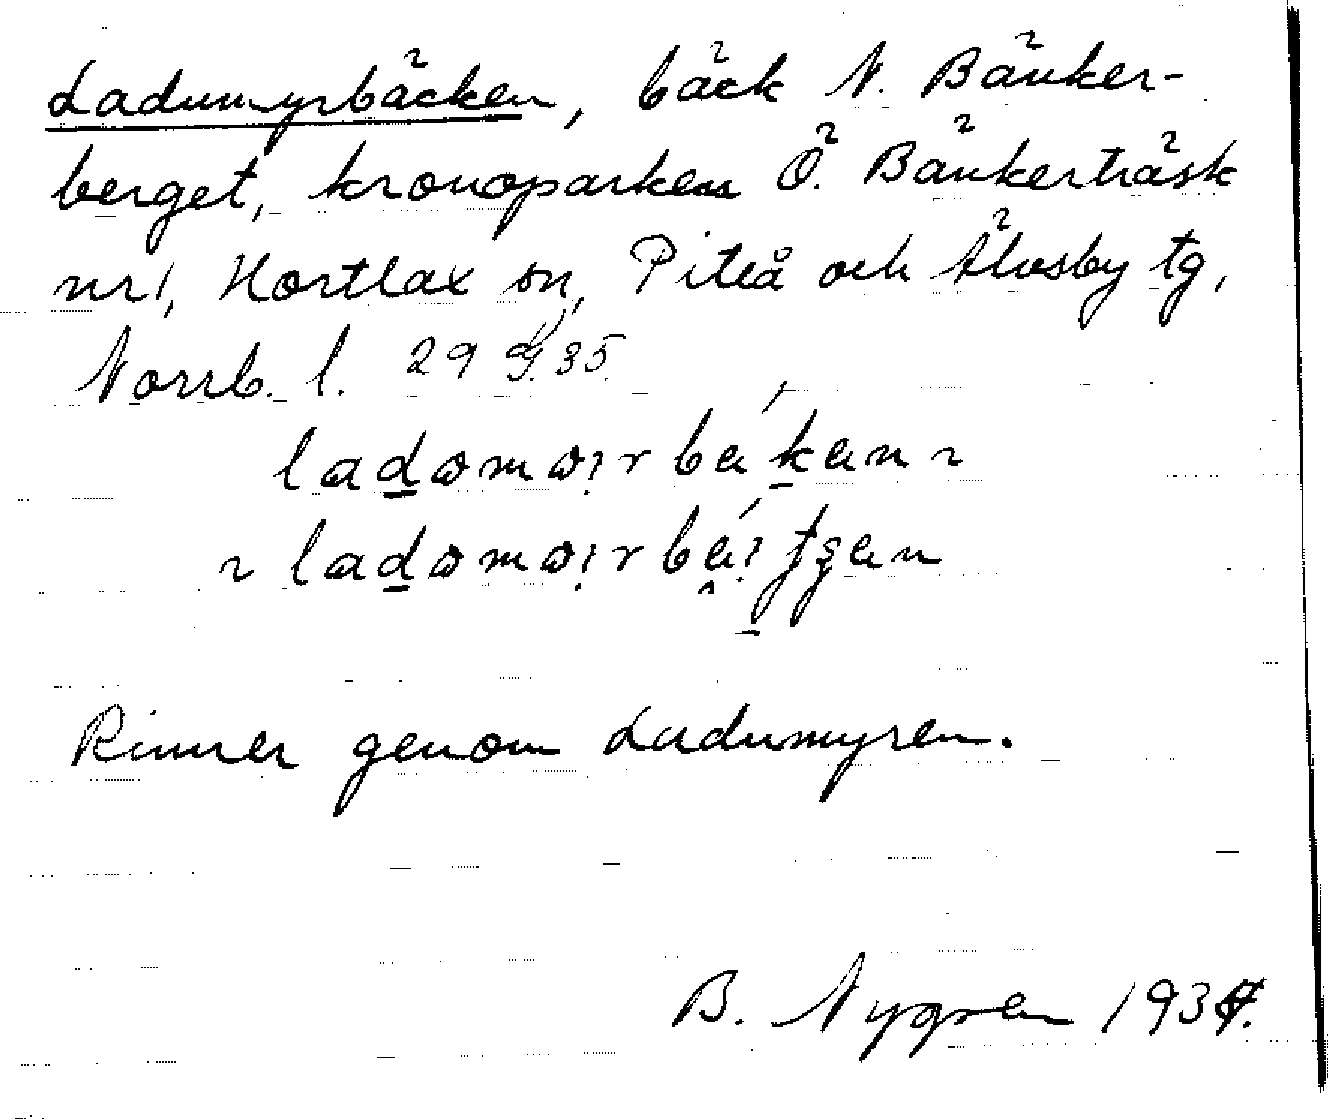 Ladumyrbäcken, bäck N. Bänker-
berget, kronoparken Ö. Bänkerträsk
nr 1, Hortlax sn, Piteå och Älvsby tg,
Norrb. l. 29 9/9 35
Rinner genom Ladumyren.
B. Nygren 1934.